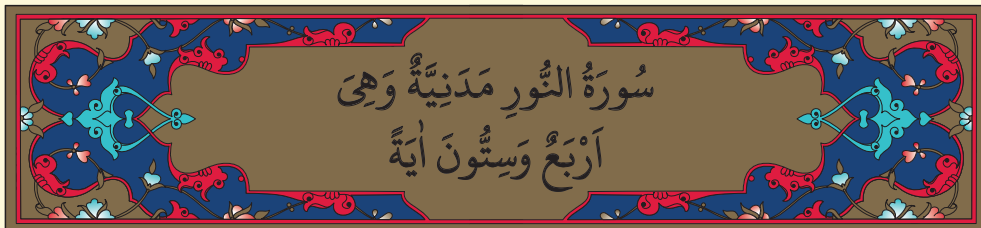 سُورَةُ النُّورِ مَدَنِيَّةٌ وَهِىَ
اَرْبَعٌ وَسِتُّونَ اٰيَةً